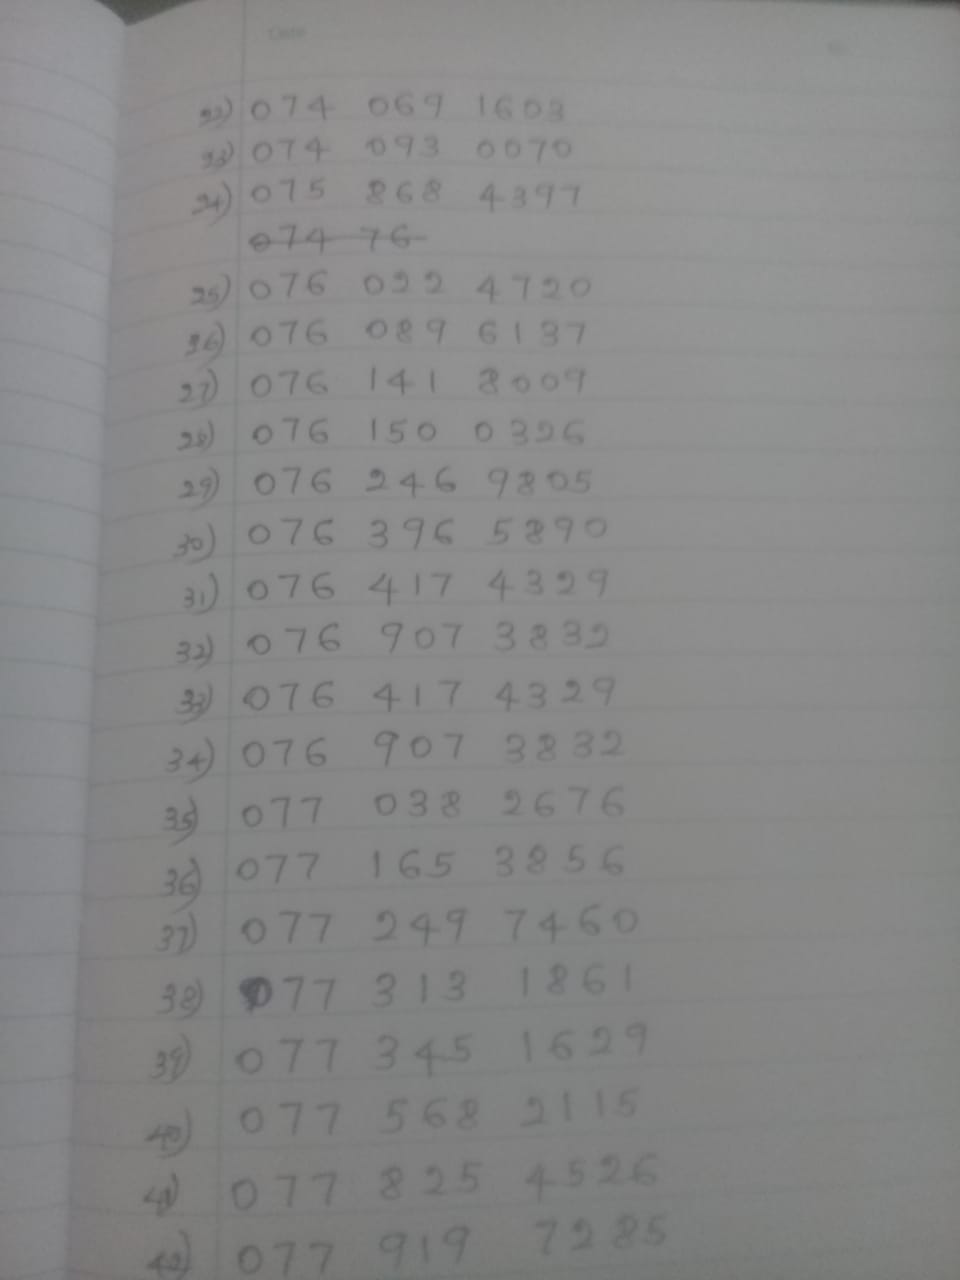 Date
22) 074 069 1603
23) 074 093 0070
24) 075 868 4397
074 76
25) 076 022 4720
26) 076 089 6137
27) 076 141 8009
28) 076 150 0326
29) 076 246 9805
30) 076 396 5890
31) 076 417 4329
32) 076 907 3832
33) 076 417 4329
34) 076 907 3832
35) 077 038 2676
36) 077 165 3856
37) 077 249 7460
38) 077 313 1861
39) 077 345 1629
40) 077 568 2115
41) 077 825 4526
42) 077 919 7285